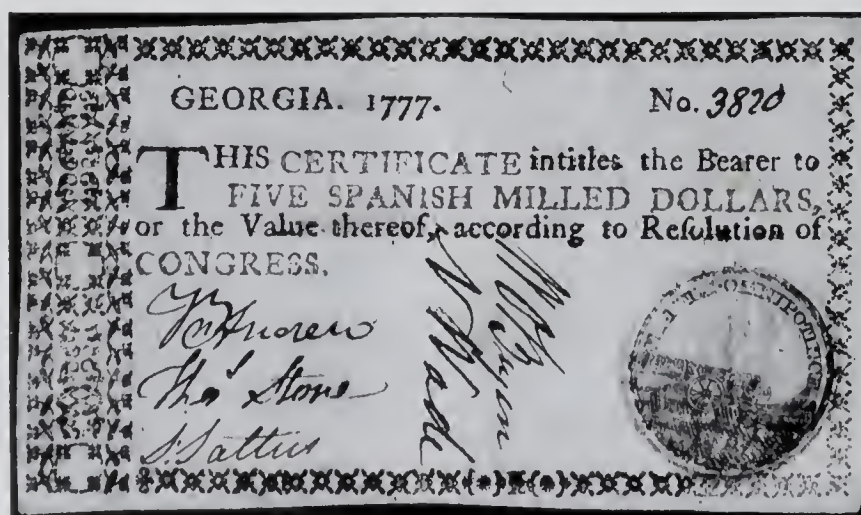 GEORGIA. 1777.
No. 3820
THIS CERTIFICATE intitles the Bearer to
FIVE SPANISH MILLED DOLLARS,
or the Value thereof, according to Reſolution of
CONGRESS.
Thoˢ Stone
N Wade
OMNIPOTENCE